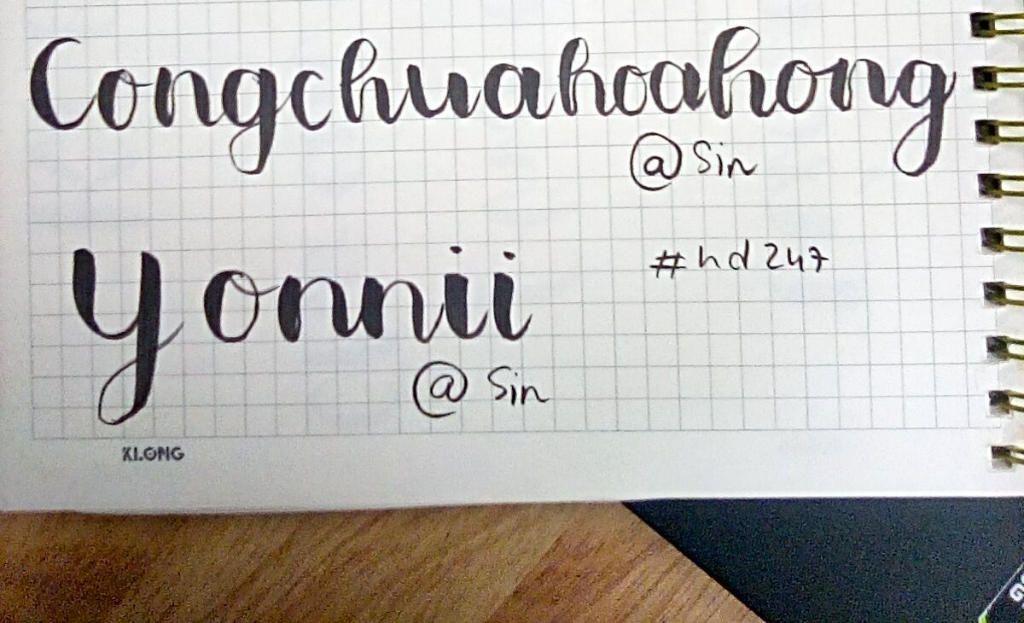 Congchuahoahong
@ Sin
#hd247
Yonnii
@ Sin
KLONG